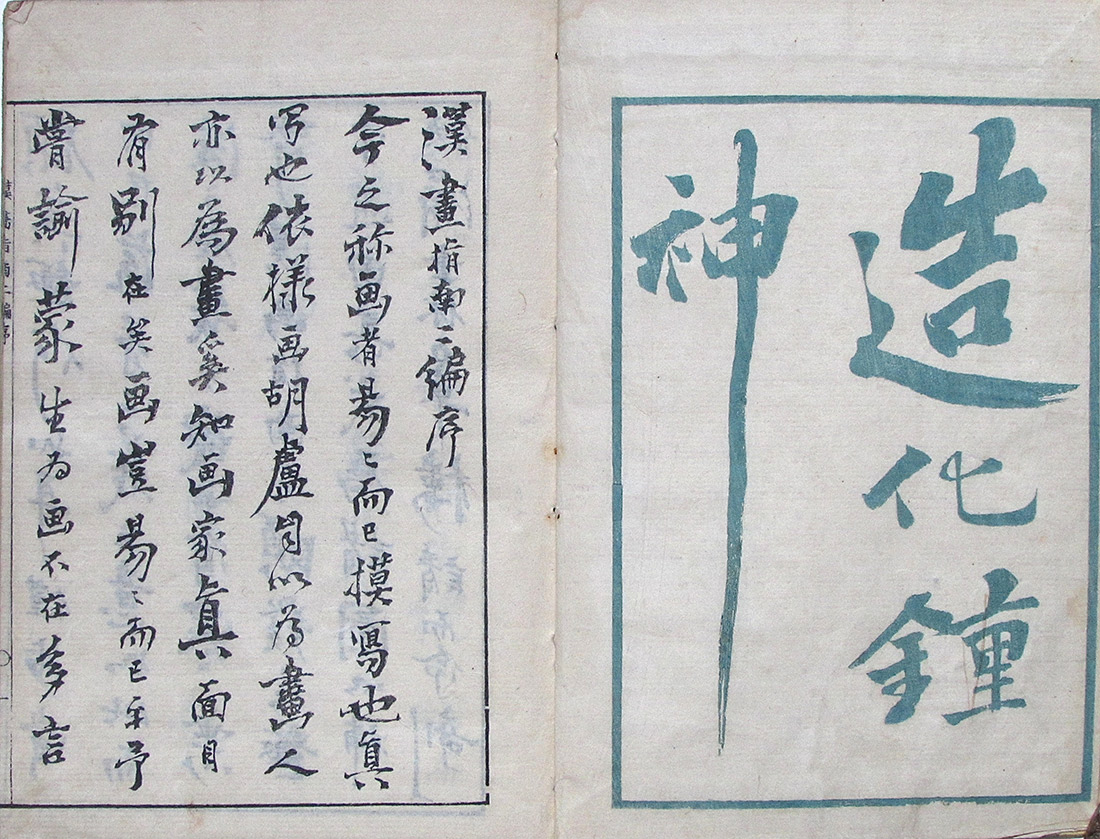 造化鍾
神
漢畫指南二編序
今之称画者易〻而已摸寫也真
写也依様画胡盧自以為畫人
亦以為畫奚知画家真面目
有別在矣画豈易〻而已乎予
嘗諭蒙生為画不在多言
漢畫指南二編序